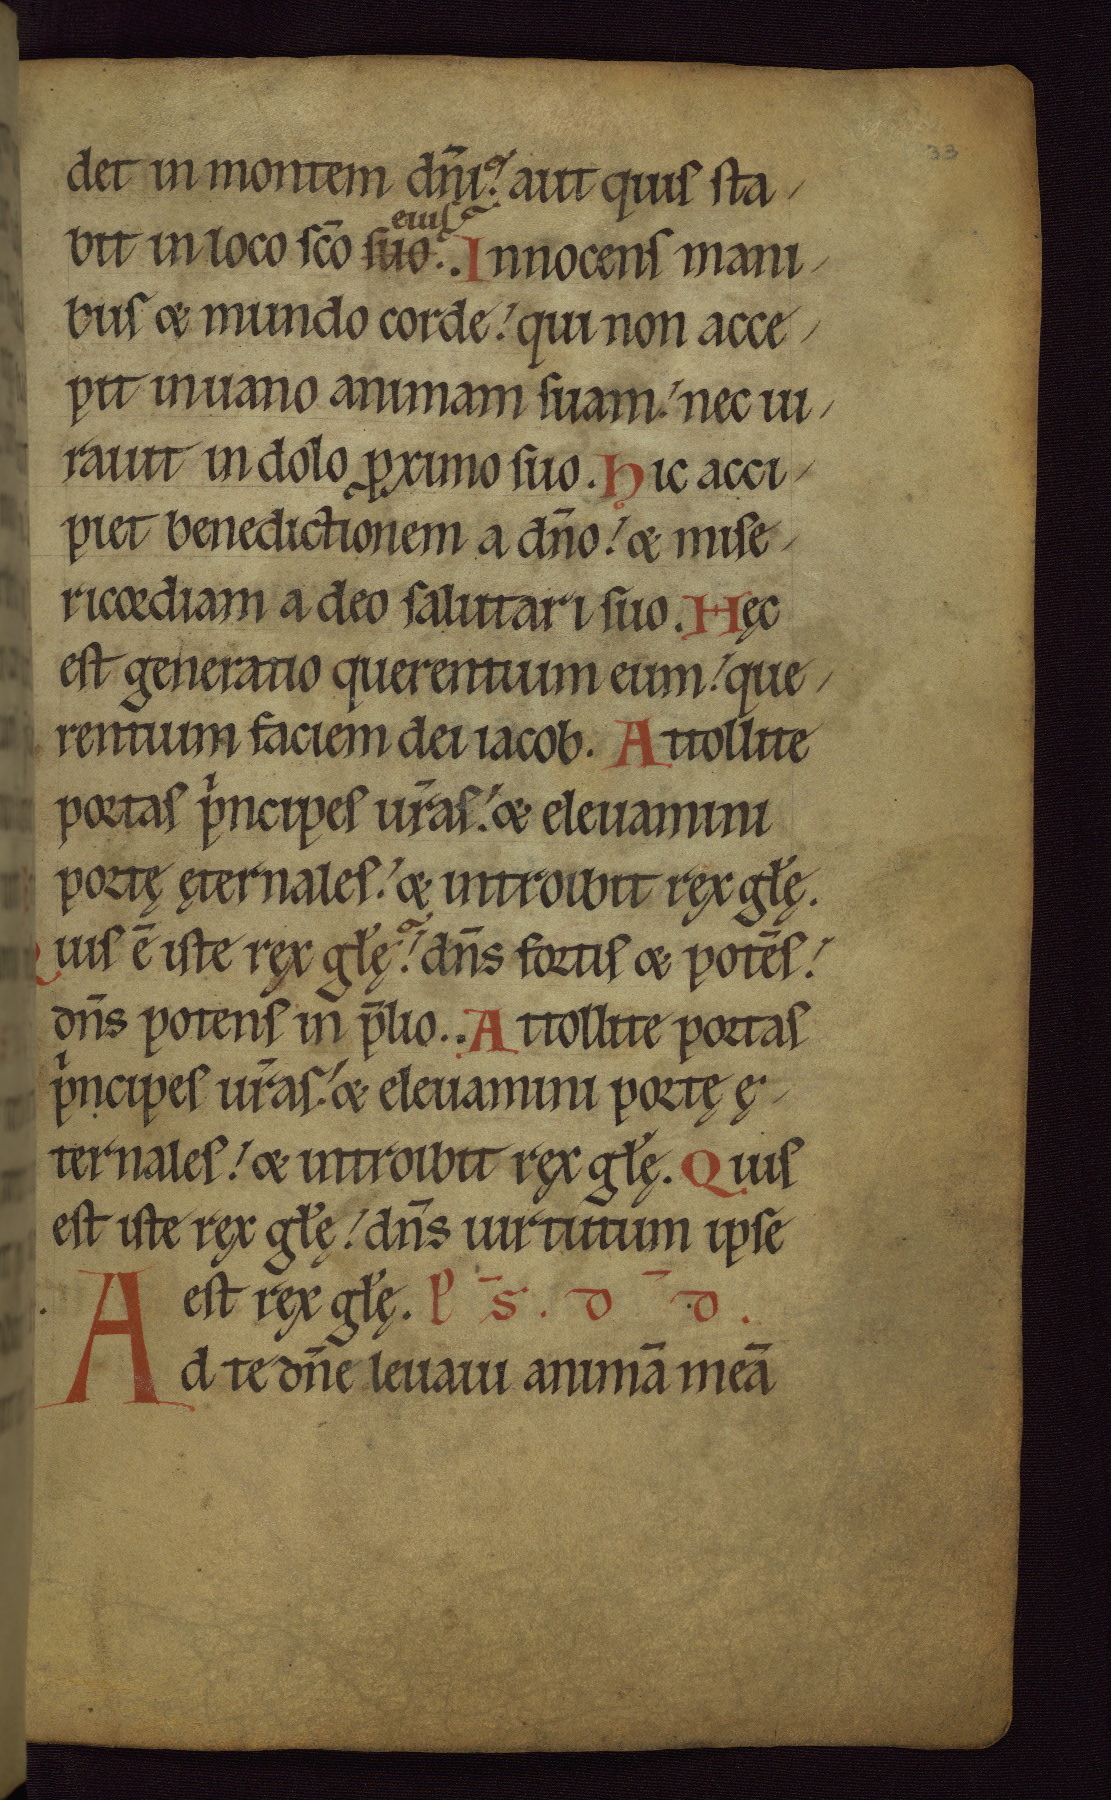 33
det in montem dn̄i? aut quis sta-
eius
bit in loco sc̄o suo.. Innocens mani-
bus & mundo corde! qui non acce-
pit inuano animam suam! nec iu-
rauit in dolo ꝓximo suo. Hic acci-
piet benedictionem a dn̄o! & mise-
ricordiam a deo salutari suo. Hęc
est generatio querentium eum! que-
rentium faciem dei iacob. Attollite
portas pͥncipes ur̄as! & eleuamini
portę ęternales! & introibit rex gl̄ę.
Quis ē iste rex gl̄ę? dn̄s fortis & potēs!
dn̄s potens in p̄lio.. Attollite portas
pͥncipes ur̄as! & eleuamini portę ę-
ternales! & introibit rex gl̄ę. Quis
est iste rex gl̄ę! dn̄s uirtutum ipse
est rex gl̄ę. P̄S. D̄D.
Ad te dn̄e leuaui animā meā